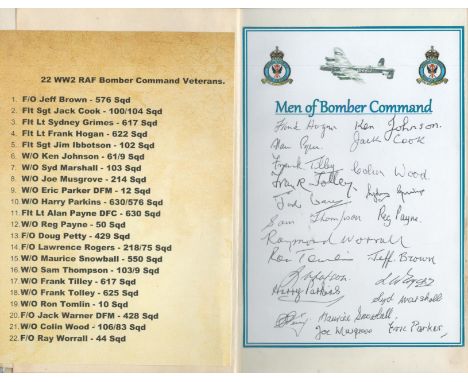 22 WW2 RAF Bomber Command Veterans.
1. F/O Jeff Brown - 576 Sqd
2. Flt Sgt Jack Cook - 100/104 Sqd
3. Flt Lt Sydney Grimes - 617 Sqd
4. Flt Lt Frank Hogan - 622 Sqd
5. Flt Sgt Jim Ibbotson - 102 Sqd
6. W/O Ken Johnson - 61/9 Sqd
7. W/O Syd Marshall - 103 Sqd
8. W/O Joe Musgrove - 214 Sqd
9. W/O Eric Parker DFM - 12 Sqd
10. W/O Harry Parkins - 630/576 Sqd
11. Flt Lt Alan Payne DFC - 630 Sqd
12. W/O Reg Payne - 50 Sqd
13. F/O Doug Petty - 429 Sqd
14. F/O Lawrence Rogers - 218/75 Sqd
15. W/O Maurice Snowball - 550 Sqd
16. W/O Sam Thompson - 103/9 Sqd
17. W/O Frank Tilley - 617 Sqd
18. W/O Frank Tolley - 625 Sqd
19. W/O Ron Tomlin - 10 Sqd
20. F/O Jack Warner DFM - 428 Sqd
21. W/O Colin Wood - 106/83 Sqd
22. F/O Ray Worrall - 44 Sqd
Men of Bomber Command
Frank Hogan Ken Johnson
Jack Cook
Frank Tilley Colin Wood
Frank Tolley
Sam Thompson Reg Payne
Raymond Worrall
Ron Tomlin Jeff Brown
Harry Parkins Syd Marshall
Maurice Snowball
Joe Musgrove Eric Parker